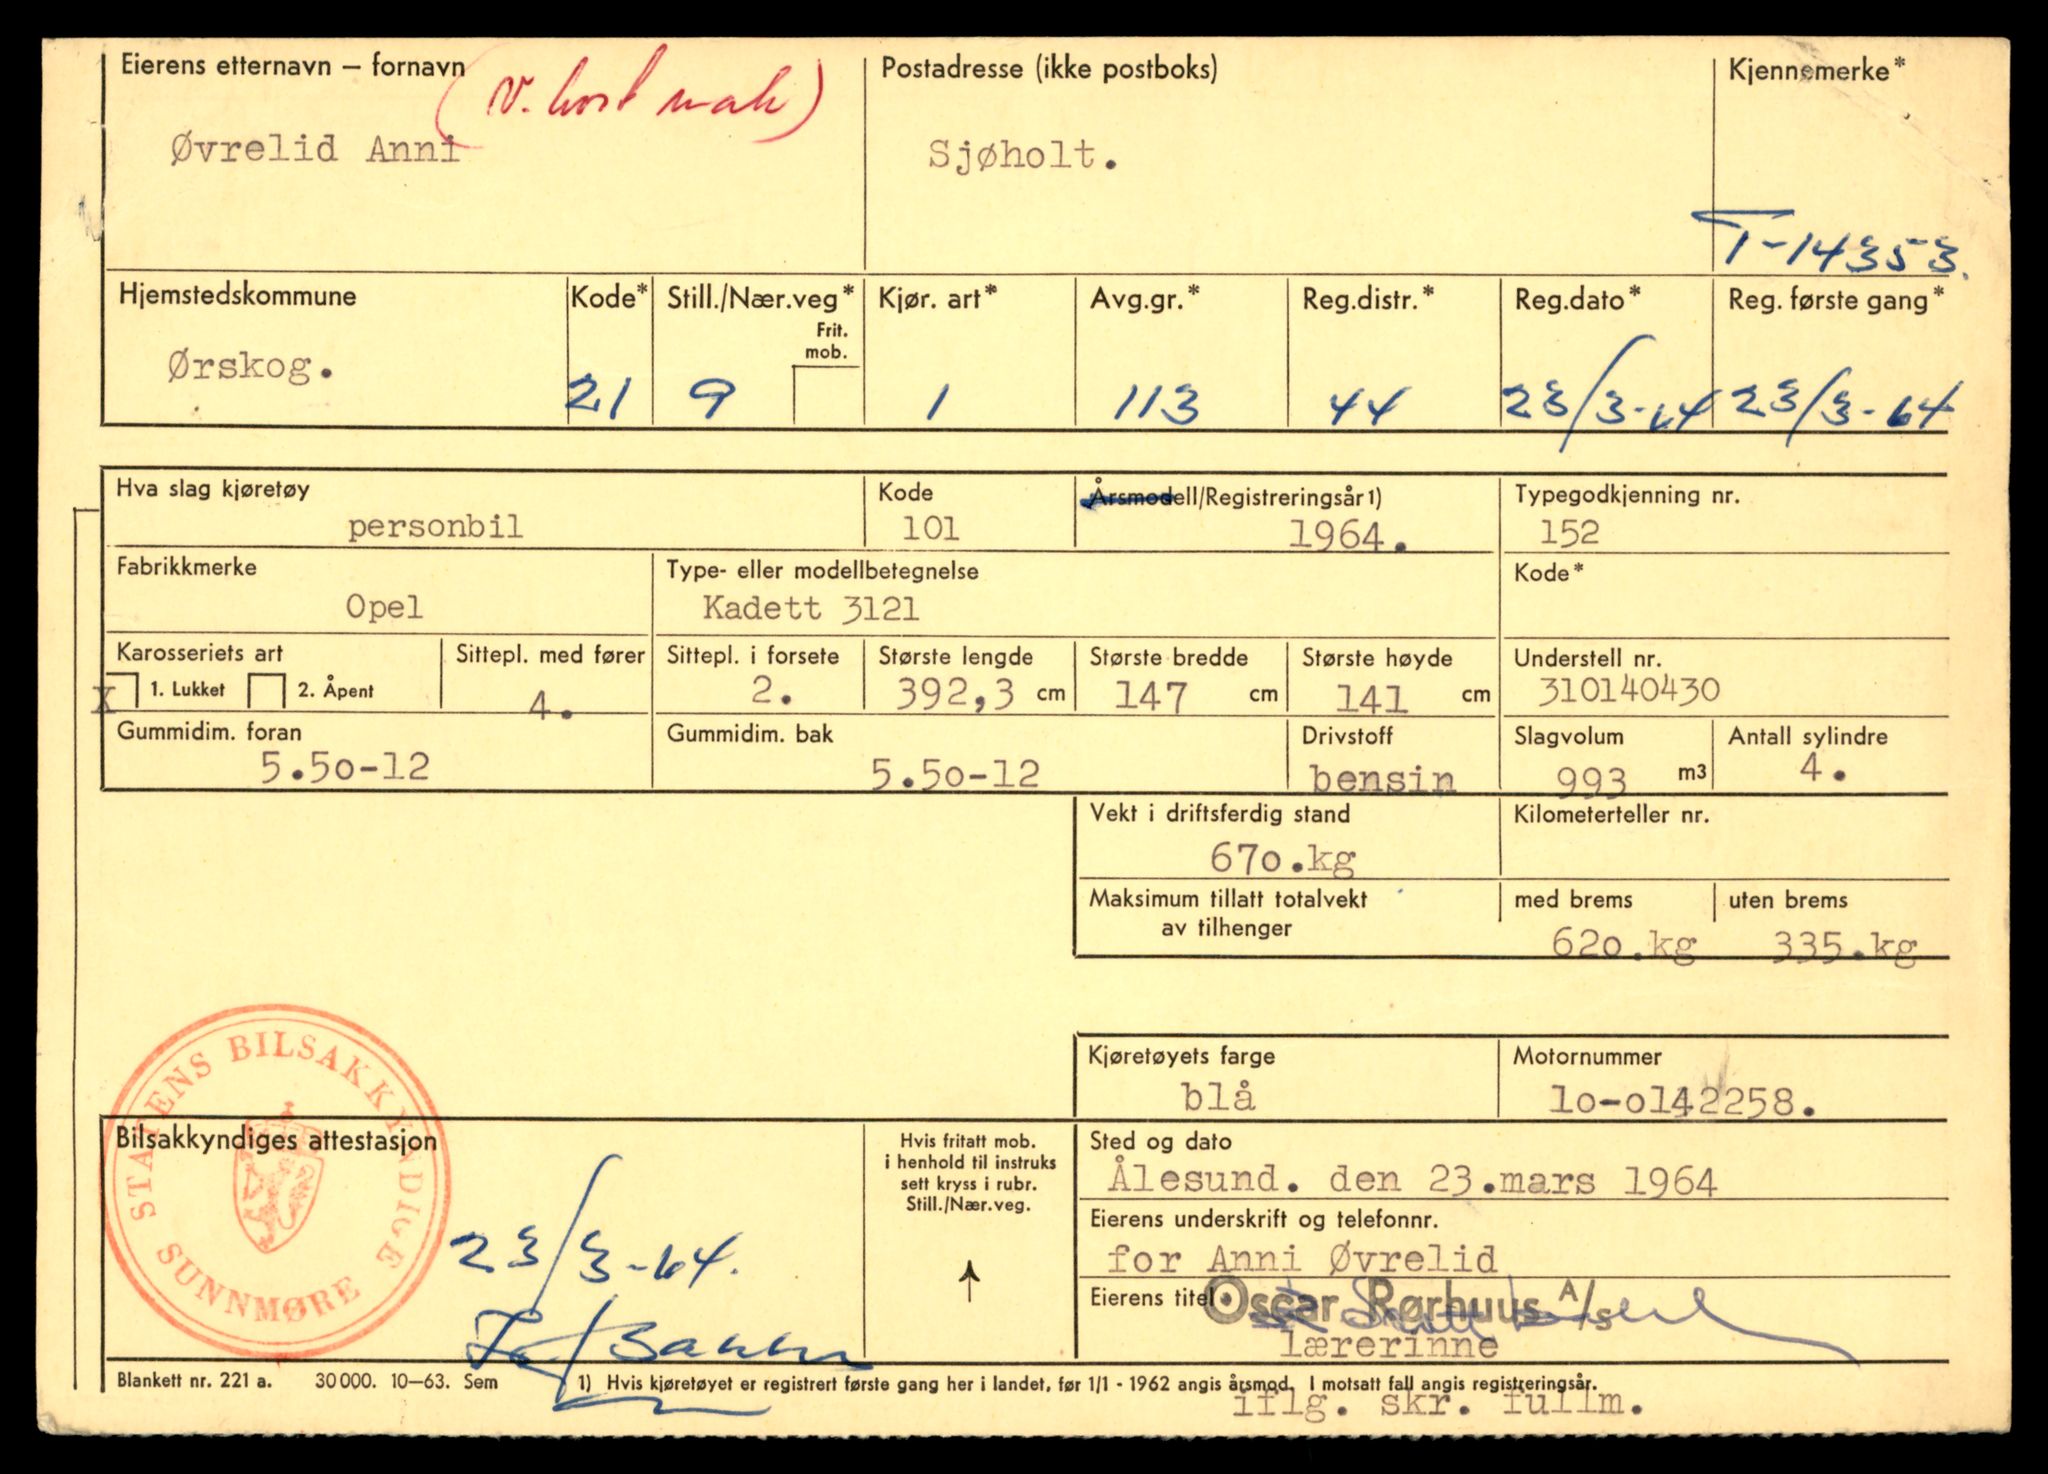 Eierens etternavn – fornavn
(v. horl mah)
Øvrelid Anni
Postadresse (ikke postboks)
Sjøholt.
Kjennemerke*
T-14353.
Hjemstedskommune
Ørskog.
Kode*
21
Still./Nær.veg*
Frit.
mob.
9
Kjør. art*
1
Avg.gr.*
113
Reg.distr.*
44
Reg.dato*
23/3-64
Reg. første gang*
23/3-64
Hva slag kjøretøy
personbil
Kode
101
Årsmodell/Registreringsår 1)
1964.
Typegodkjenning nr.
152
Fabrikkmerke
Opel
Type- eller modellbetegnelse
Kadett 3121
Kode*
Karosseriets art
X 1. Lukket 2. Åpent
Sittepl. med fører
4.
Sittepl. i forsete
2.
Største lengde
392,3 cm
Største bredde
147 cm
Største høyde
141 cm
Understell nr.
310140430
Gummidim. foran
5.50-12
Gummidim. bak
5.50-12
Drivstoff
bensin
Slagvolum
993 m3
Antall sylindre
4.
Vekt i driftsferdig stand
670.kg
Kilometerteller nr.
Maksimum tillatt totalvekt
av tilhenger
med brems
620.kg
uten brems
335.kg
Kjøretøyets farge
blå
Motornummer
10-0142258.
STATENS BILSAKKYNDIGE
SUNNMØRE
Bilsakkyndiges attestasjon
23/3-64.
Hvis fritatt mob.
i henhold til instruks
sett kryss i rubr.
Still./Nær.veg.
Sted og dato
Ålesund. den 23.mars 1964
Eierens underskrift og telefonnr.
for Anni Øvrelid
Eierens titel
Oscar Rørhuus A/s
lærerinne
Blankett nr. 221 a. 30 000. 10–63. Sem
1) Hvis kjøretøyet er registrert første gang her i landet, før 1/1 - 1962 angis årsmod. I motsatt fall angis registreringsår.
iflg. skr. fullm.